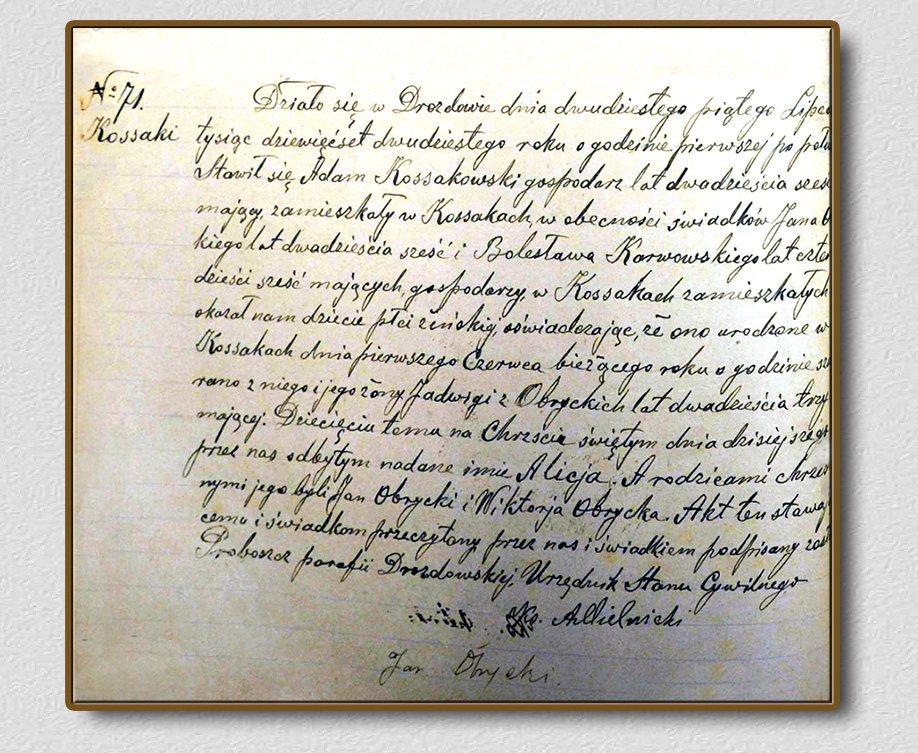 No 71.
Kossaki
Działo się w Drozdowie dnia dwudziestego piątego Lipca
tysiąc dziewięćset dwudziestego roku o godzinie pierwszej po połu
Stawił się Adam Kossakowski gospodarz lat dwadzieścia sześć
mający, zamieszkały w Kossakach, w obecności świadków Jana O
kiego lat dwadzieścia sześć i Bolesława Karwowskiego lat czter
dzieści sześć mających, gospodarzy, w Kossakach zamieszkałych
okazał nam dziecie płci żeńskiej, oświadczając, że ono urodzone w
Kossakach dnia pierwszego Czerwca bieżącego roku o godzinie
rano z niego i jego żony Jadwigi z Obryckich lat dwadzieścia trzy
mającej. Dziecięciu temu na Chrzcie świętym dnia dzisiejszego
przez nas odbytym nadane imie Alicja. A rodzicami chrzes
nymi jego byli Jan Obrycki i Wiktorja Obrycka. Akt ten stawa
cemu i świadkom przeczytany przez nas i świadkiem podpisany
Proboszcz parafii Drozdowskiej Urzędnik Stanu Cywilnego
Jan Obrycki.